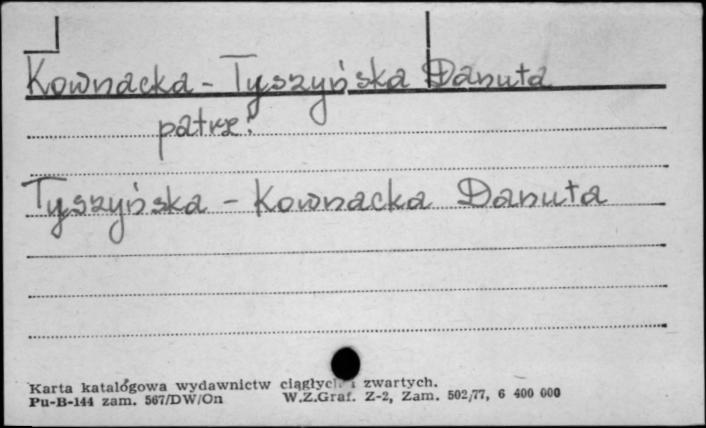 Kownacka - Tyszyńska Danuta
patrz:
Tyszyńska - Kownacka Danuta
Karta katalogowa wydawnictw ciągłych i zwartych.
Pu-B-144 zam. 567/DW/On W.Z.Graf. Z-2, Zam. 502/77, 6 400 000